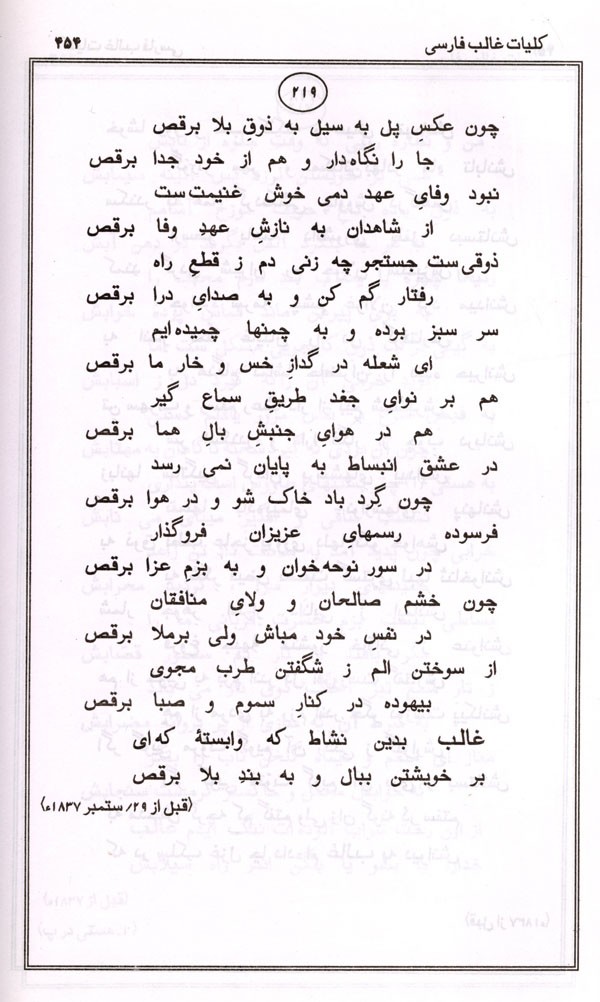 کلیات غالب فارسی ۴۵۴
۲۱۹
چون عکسِ پل به سیل به ذوقِ بلا برقص
جا را نگاه‌دار و هم از خود جدا برقص
نبود وفایِ عهد دمی خوش غنیمت ست
از شاهدان به نازشِ عهدِ وفا برقص
ذوقی ست جستجو چه زنی دم ز قطعِ راه
رفتار گم کن و به صدایِ درا برقص
سر سبز بوده و به چمنها چمیده ایم
ای شعله در گدازِ خس و خار ما برقص
هم بر نوایِ جغد طریقِ سماع گیر
هم در هوایِ جنبش بالِ هما برقص
در عشق انبساط به پایان نمی رسد
چون گِرد باد خاک شو و در هوا برقص
فرسوده رسمهایِ عزیزان فروگذار
در سور نوحه‌خوان و به بزمِ عزا برقص
چون خشم صالحان و ولای منافقان
در نفسِ خود مباش ولی برملا برقص
از سوختن الم ز شگفتن طرب مجوی
بیهوده در کنارِ سموم و صبا برقص
غالب بدین نشاط که وابستهٔ که‌ای
بر خویشتن ببال و به بندِ بلا برقص
(قبل از ۲۹/ ستمبر ۱۸۳۷ء)